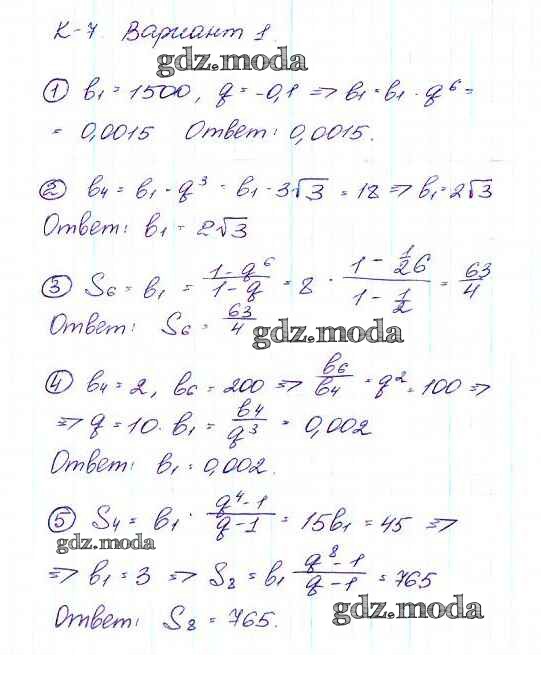 К-7. Вариант 1.
gdz.moda
① b₁ = 1500, q = -0,1 => b₁ = b₁ · q⁶ =
= 0,0015 Ответ: 0,0015.
② b₄ = b₁ · q³ = b₁ · 3√3 = 18 => b₁ = 2√3
Ответ: b₁ = 2√3
③ S₆ = b₁ = (1-q⁶)/(1-q) = 8 · (1 - 1/26)/(1 - 1/2) = 63/4
Ответ: S₆ = 63/4
gdz.moda
④ b₄ = 2, b₆ = 200 => b₆/b₄ = q² = 100 =>
=> q = 10. b₁ = b₄/q³ = 0,002
Ответ: b₁ = 0,002.
⑤ S₄ = b₁ · (q⁴-1)/(q-1) = 15b₁ = 45 =>
gdz.moda
=> b₁ = 3 => S₈ = b₁ (q⁸-1)/(q-1) = 765
gdz.moda
Ответ: S₈ = 765.